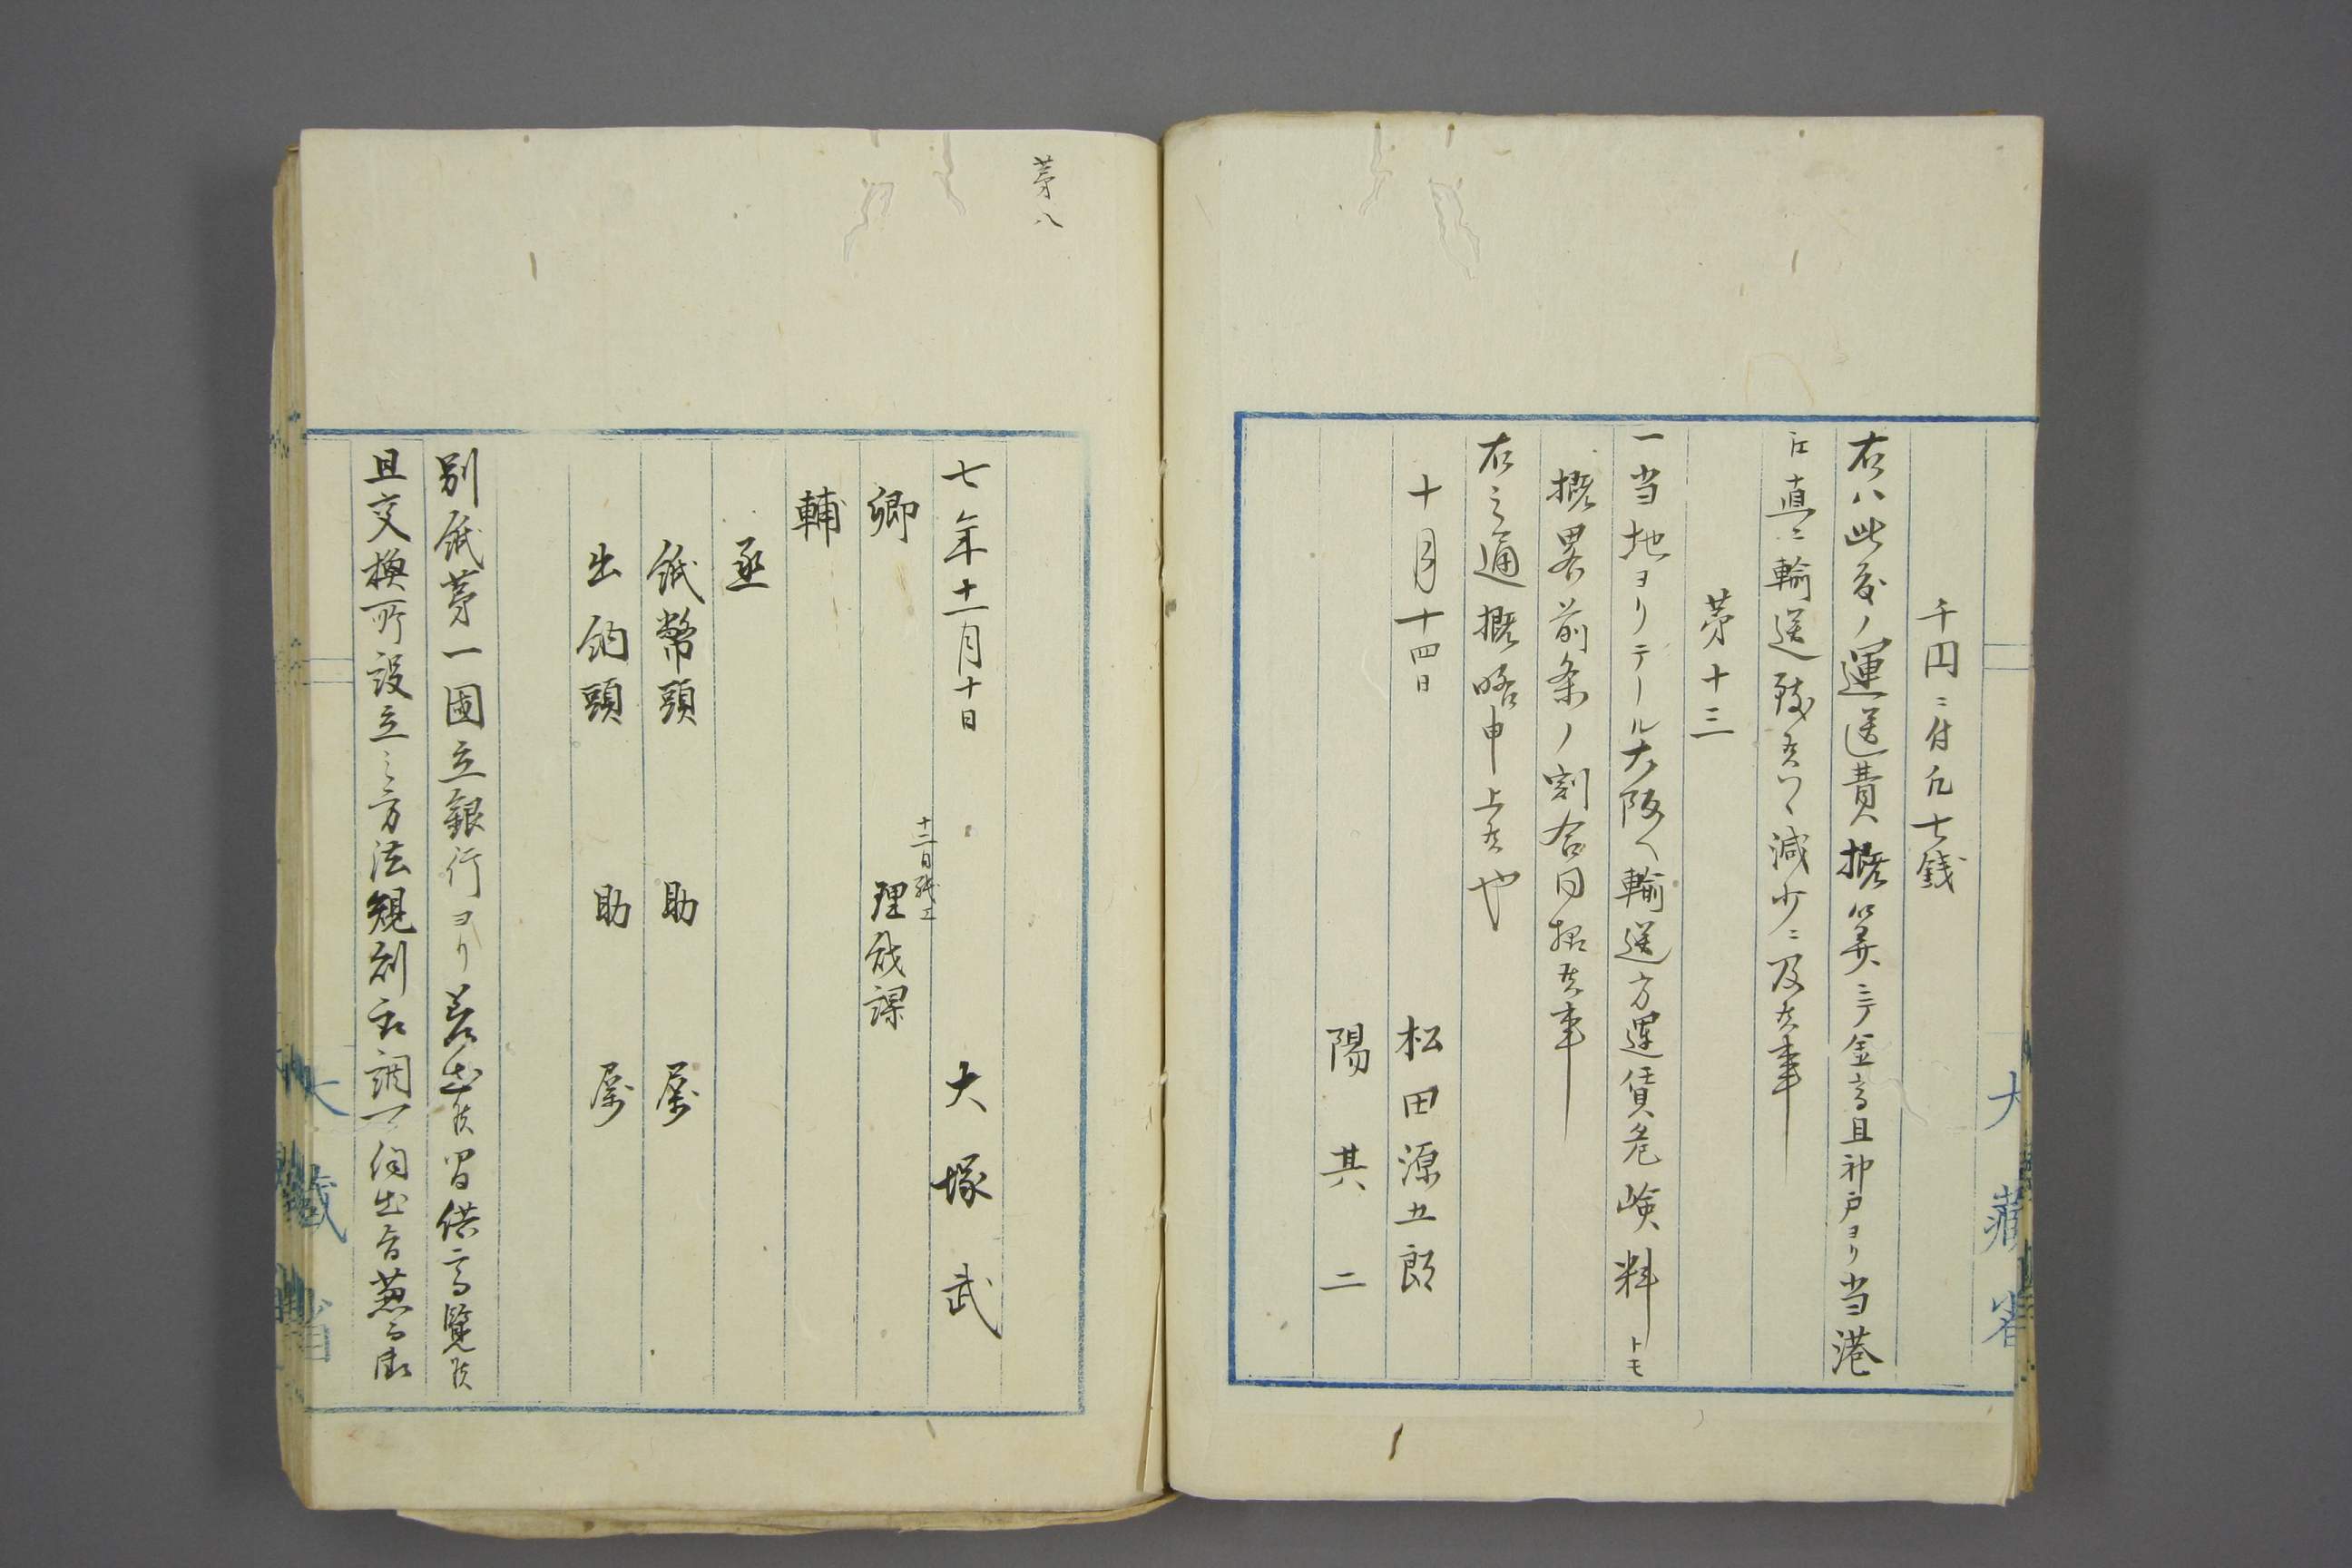 千円ニ付凡七銭
右ハ此度ノ運送費概算ニテ金高且神戸ヨリ当港
江直ニ輸送致候ハヽ減少ニ及候事
第十三
一当地ヨリテール大阪ヘ輸送方運賃危険料トモ
概畧前条ノ割合同拟候事
右之通概略申上候也
十月十四日
松田源五郎
陽其二
大蔵省
第八
七年十一月十日
大塚武
十二日
理財課
卿
輔
丞
紙幣頭 助 属
出納頭 助 属
別紙第一國立銀行ヨリ差出候間供高覧候
且交換所設立之方法規則取調可伺出旨兼而御
大蔵省